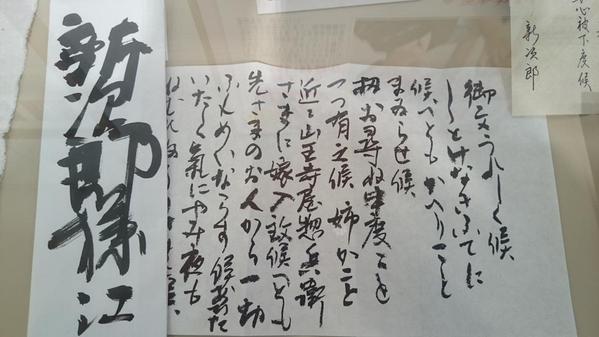 心被下度候
新次郎
御文うれしく候
しとけなきふてに
候へともかへりこと
まゐらせ候
扨お尋ね申度ことを
一つ有之候 姉かこと
近々山王寺屋惣兵衛
さまに嫁入致候へとも
先さまのお人から一切
ふんめいならす候あいた
いたく氣にやみ夜も
新次郎様江